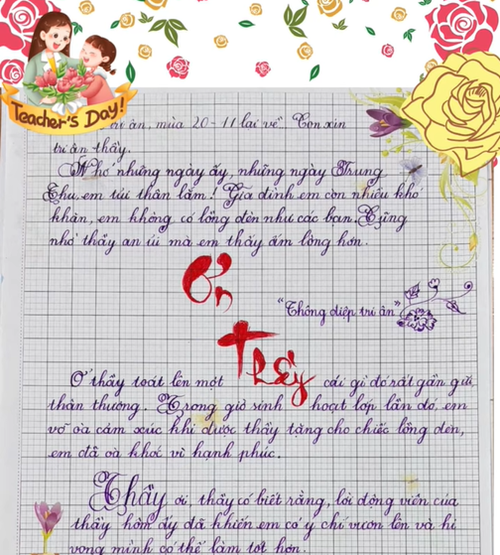 Teacher's Day!
tri ân, mùa 20-11 lại về Con xin
tri ân thầy.
Nhớ những ngày ấy, những ngày Trung
Thu, em tủi thân lắm! Gia đình em còn nhiều khó
khăn, em không có lồng đèn như các bạn. Cũng
nhờ thầy an ủi mà em thấy ấm lòng hơn.
Ơn
"Thông điệp tri ân"
Thầy
Ở thầy toát lên một cái gì đó rất gần gũi
thân thương. Trong giờ sinh hoạt lớp lần đó, em
vỡ òa cảm xúc khi được thầy tặng cho chiếc lồng đèn,
em đã òa khóc vì hạnh phúc.
Thầy ơi, thầy có biết rằng, lời động viên của
thầy hôm ấy đã khiến em có ý chí vươn lên và hi
vọng mình có thể làm tốt hơn.